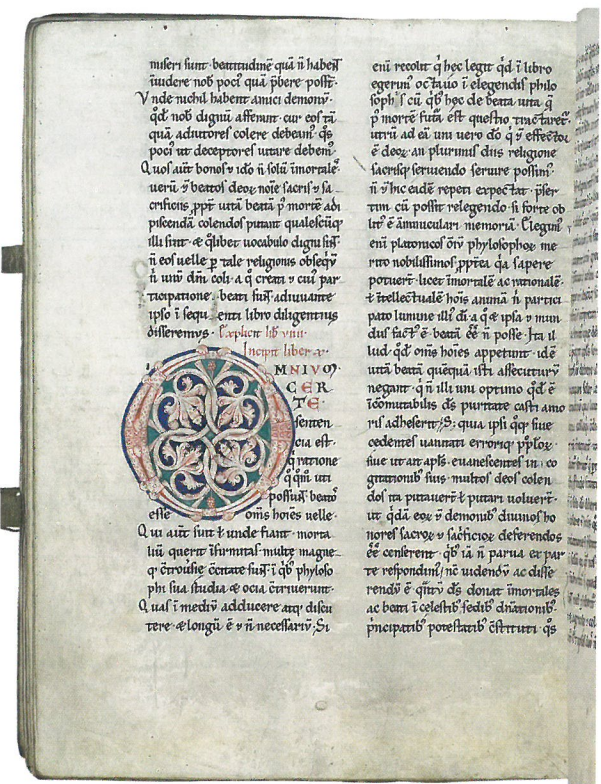 miseri sunt · beatitudinē quā ñ habent
inuidere nob̄ poci⁹ quā p̄bere possīt ·
Vnde nichil habent amici demonū ·
q̄d nob̄ dignū afferant · cur eos tā
quā adiutores colere debeam⁹ · q̄s
poci⁹ ut deceptores uitare debem⁹ ·
Quos aut̄ bonos ⁊ idō ñ solū īmortale᷒ ·
uerū ⁊ beatos deoꝝ noīe sacris ⁊ sa
crificiis ꝓpt̄ uitā beatā p⁹ mortē adi
piscendā colendos putant qualescūq;
illi sint · & q̄libet uocabulo digni sīt ·
ñ eos uelle ꝑ tale religionis obseq̄ū
ñ unū dm̄ coli · a q̄ creati ⁊ cui⁹ par
ticipatione beati sunt adiuuante
ipso ī sequenti libro diligentius
disserem⁹ · Explicit lib̄ viiii ·
Incipit liber x ·
MNIVM
CER
TE
senten
cia est ·
q̄ ratione
q̄q̄m uti
possunt beatos
esse om̄s hoīes uelle ·
Qui aut̄ sint ł unde fiant · morta
liū querit īfirmitas multę magne
q;
phi sua studia & ocia c̄triuerunt ·
Quas ī mediū adducere atq; discu
tere & longū ē ⁊ ñ necessariū · Si
eni recolit q̄ hec legit q̄d ī libro
egerim⁹ octauo ī elegendis philo
soph᷒ cū q̄b⁹ hęc de beata uita q̄
p⁹ mortē futa est questio tractaret᷑ ·
utrū ad eā uni uero dō q̄ ⁊ effector
ē deoꝝ · an plurimis diis religione
sacrisq; seruiendo seruire possim⁹ ·
ñ ⁊ hic eadē repeti expectat · p̄ser
tim cū possit relegendo si forte ob
lit⁹ ē amminiculari memoriā · Elegim⁹
eni platonicos oīū philosophoꝝ me
rito nobilissimos · ꝓpt̄ea q̄a sapere
potuerт̄ · licet īmortalē ac rationalē ·
ł ītellectualē hoīs animā ñ partici
pato lumine illi⁹ dī · a q̄ & ipsa ⁊ mun
dus fact⁹ ē · beatā ēē ñ posse · Ita il
lud · q̄d om̄s hoīes appetunt · idē
uitā beatā quēquā isti assecuturū
negant · q̄ ñ illi uni optimo q̄d ē
īcōmutabilis ds̄ puritate casti amo
ris adheserit · S; quia ipsi q̄q; siue
cedentes uanitati erroriq; pp̄loꝝ ·
siue ut ait apl̄s · euanescentes in co
gitationib⁹ suis · multos deos colen
dos ita putauer̄t ł putari uoluer̄t ·
ut q̄dā eoꝝ ⁊ demonib⁹ diuinos ho
nores sacroꝝ ⁊ sac̄ficioꝝ deferendos
ēē censerent · q̄b⁹ iā ñ parua ex par
te respondim⁹ · nc̄ uidendū ac disse
rendū ē
ac beati ī celestib⁹ sedib⁹ dn̄ationib⁹ ·
p̄ncipatib⁹ potestatib⁹ c̄stituti · q̄s